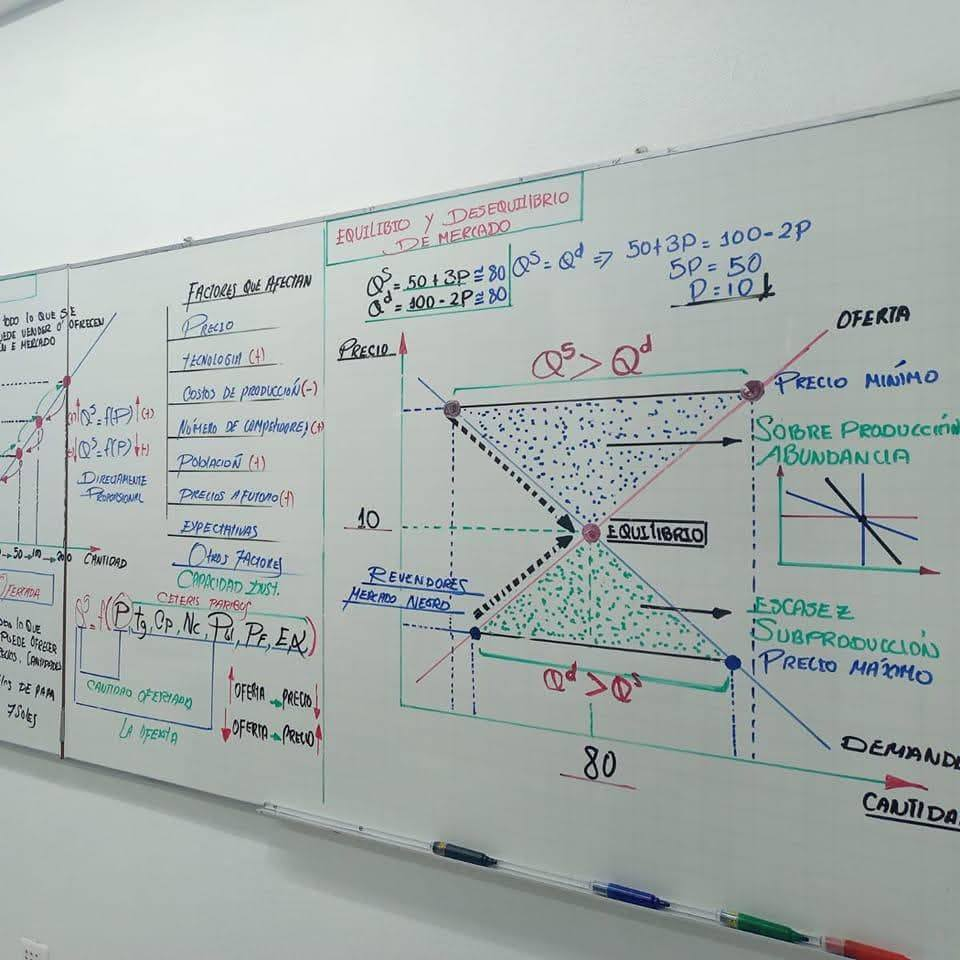 TODO LO QUE SE
PUEDE VENDER O' OFRECEN
EN E MERCADO
Qˢ = f(P) (+)
Qˢ = f(P)
DIRECTAMENTE
PROPORSIONAL
50 → 100 → 200
CANTIDAD
LO QUE
PUEDE OFRECER
DE PAPA
7 SOLES
FACTORES QUE AFECTAN
PRECIO
TECNOLOGIA (+)
COSTOS DE PRODUCCIÓN (-)
NÚMERO DE COMPETIDORES (+)
POBLACIÓN (+)
PRECIOS A FUTURO (+)
EXPECTATIVAS
OTROS FACTORES
CAPACIDAD INST.
CETERIS PARIBUS
Qˢ = f(P, tg, Cp, Nc, Pbl, PF, EX)
CANTIDAD OFERTADO
LA OFERTA
↑ OFERTA → PRECIO ↓
↓ OFERTA → PRECIO ↑
EQUILIBIO Y DESEQUILIBRIO
DE MERCADO
Qˢ = 50 + 3P ≅ 80
Qᵈ = 100 - 2P ≅ 80
Qˢ = Qᵈ => 50+3P = 100 - 2P
5P = 50
P = 10
PRECIO
OFERTA
Qˢ > Qᵈ
PRECIO MÍNIMO
SOBRE PRODUCCIÓN
ABUNDANCIA
10
EQUILIBRIO
REVENDORES
MERCADO NEGRO
ESCASEZ
SUBPRODUCCIÓN
PRECIO MÁXIMO
Qᵈ > Qˢ
80
DEMANDA
CANTIDA